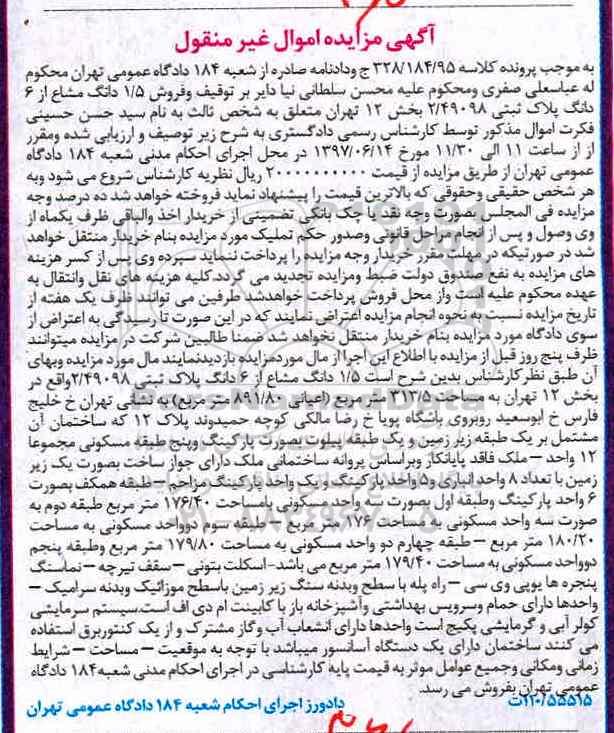 آگهی مزایده اموال غیر منقول
به موجب پرونده کلاسه ۳۲۸/۱۸۴/۹۵ ج ودادنامه صادره از شعبه ۱۸۴ دادگاه عمومی تهران محکوم
له عباسعلی صفری ومحکوم علیه محسن سلطانی نیا دایر بر توقیف وفروش ۱/۵ دانگ مشاع از ۶
دانگ پلاک ثبتی ۲/۴۹۰۹۸ بخش ۱۲ تهران متعلق به شخص ثالث به نام سید حسن حسینی
فکرت اموال مذکور توسط کارشناس رسمی دادگستری به شرح زیر توصیف و ارزیابی شده ومقرر
از از ساعت ۱۱ الی ۱۱/۳۰ مورخ ۱۳۹۷/۰۶/۱۴ در محل اجرای احکام مدنی شعبه ۱۸۴ دادگاه
عمومی تهران از طریق مزایده از قیمت ۲۰۰۰۰۰۰۰۰۰۰ ریال نظریه کارشناس شروع می شود وبه
هر شخص حقیقی وحقوقی که بالاترین قیمت را پیشنهاد نماید فروخته خواهد شد ده درصد وجه
مزایده فی المجلس بصورت وجه نقد یا چک بانکی تضمینی از خریدار اخذ والباقی ظرف یکماه از
وی وصول و پس از انجام مراحل قانونی وصدور حکم تملیک مورد مزایده بنام خریدار منتقل خواهد
شد در صورتیکه در مهلت مقرر خریدار وجه مزایده را پرداخت ننماید سپرده وی پس از کسر هزینه
های مزایده به نفع صندوق دولت ضبط ومزایده تجدید می گردد.کلیه هزینه های نقل وانتقال به
عهده محکوم علیه است واز محل فروش پرداخت خواهدشد طرفین می توانند ظرف یک هفته از
تاریخ مزایده نسبت به نحوه انجام مزایده اعتراض نمایند که در این صورت تا رسیدگی به اعتراض از
سوی دادگاه مورد مزایده بنام خریدار منتقل نخواهد شد ضمنا طالبین شرکت در مزایده میتوانند
ظرف پنج روز قبل از مزایده با اطلاع این اجرا از مال موردمزایده بازدیدنمایند مال مورد مزایده وبهای
آن طبق نظر کارشناس بدین شرح است ۱/۵ دانگ مشاع از ۶ دانگ پلاک ثبتی ۲/۴۹۰۹۸واقع در
بخش ۱۲ تهران به مساحت ۳۱۳/۵ متر مربع (اعیانی ۸۹۱/۸۰ متر مربع) به نشانی تهران خ خلیج
فارس خ ابوسعید روبروی باشگاه پویا خ رضا مالکی کوچه حمیدوند پلاک ۱۲ که ساختمان آن
مشتمل بر یک طبقه زیر زمین و یک طبقه پیلوت بصورت پارکینگ وپنج طبقه مسکونی مجموعا
۱۲ واحد – ملک فاقد پایانکار وبراساس پروانه ساختمانی ملک دارای جواز ساخت بصورت یک زیر
زمین با تعداد ۸ واحد انباری و۵ واحد پارکینگ و یک واحد پارکینگ مزاحم – طبقه همکف بصورت
۶ واحد پارکینگ وطبقه اول بصورت سه واحد مسکونی بامساحت ۱۷۶/۴۰ متر مربع طبقه دوم به
صورت سه واحد مسکونی به مساحت ۱۷۶ متر مربع – طبقه سوم دوواحد مسکونی به مساحت
۱۸۰/۲۰ متر مربع – طبقه چهارم دو واحد مسکونی به مساحت ۱۷۹/۸۰ متر مربع وطبقه پنجم
دوواحد مسکونی به مساحت ۱۷۹/۴۰ متر مربع می باشد-اسکلت بتونی – سقف تیرچه – نماسنگ
پنجره ها یوپی وی سی – راه پله با سطح وبدنه سنگ زیر زمین باسطح موزائیک وبدنه سرامیک –
واحدها دارای حمام وسرویس بهداشتی وآشپزخانه باز با کابینت ام دی اف است.سیستم سرمایشی
کولر آبی و گرمایشی پکیج است واحدها دارای انشعاب آب وگاز مشترک و از یک کنتوربرق استفاده
می کنند ساختمان دارای یک دستگاه آسانسور میباشد با توجه به موقعیت – مساحت – شرایط
زمانی ومکانی وجمیع عوامل موثر به قیمت پایه کارشناسی در اجرای احکام مدنی شعبه۱۸۴ دادگاه
عمومی تهران بفروش می رسد.
۱۱۰/۵۵۵۱۵ت دادورز اجرای احکام شعبه ۱۸۴ دادگاه عمومی تهران